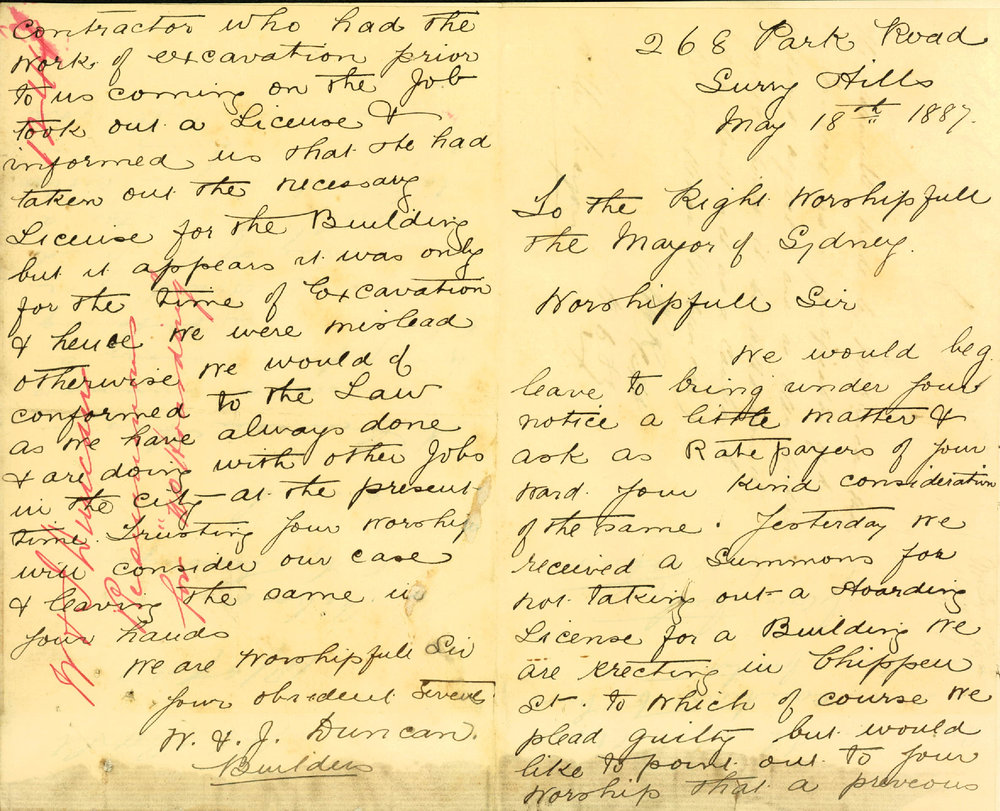 268 Park Road
Surry Hills
May 18th 1887.
To the Right Worshipfull
the Mayor of Sydney.
Worshipfull Sir
We would beg
leave to bring under your
notice a little matter &
ask as Ratepayers of your
ward your kind consideration
of the same. Yesterday we
received a Summons for
not taking out a Hoarding
License for a Building we
are erecting in Chippen
St. to which of course we
plead guilty but would
like to point out to your
worship that a preveous
contractor who had the
work of excavation prior
to us coming on the Job
took out a License &
informed us that he had
taken out the necessary
License for the Building
but it appears it was only
for the time of Excavation
& hence we were mislead
otherwise we would of
conformed to the Law
as we have always done
& are doing with other Jobs
in the city at the present
time. Trusting your worship
will consider our case
& leaving the same in
your hands
We are Worshipfull Sir
your obedient
W. & J. Duncan.
Builders
W & J Duncan
Summons
for "Hoarding"